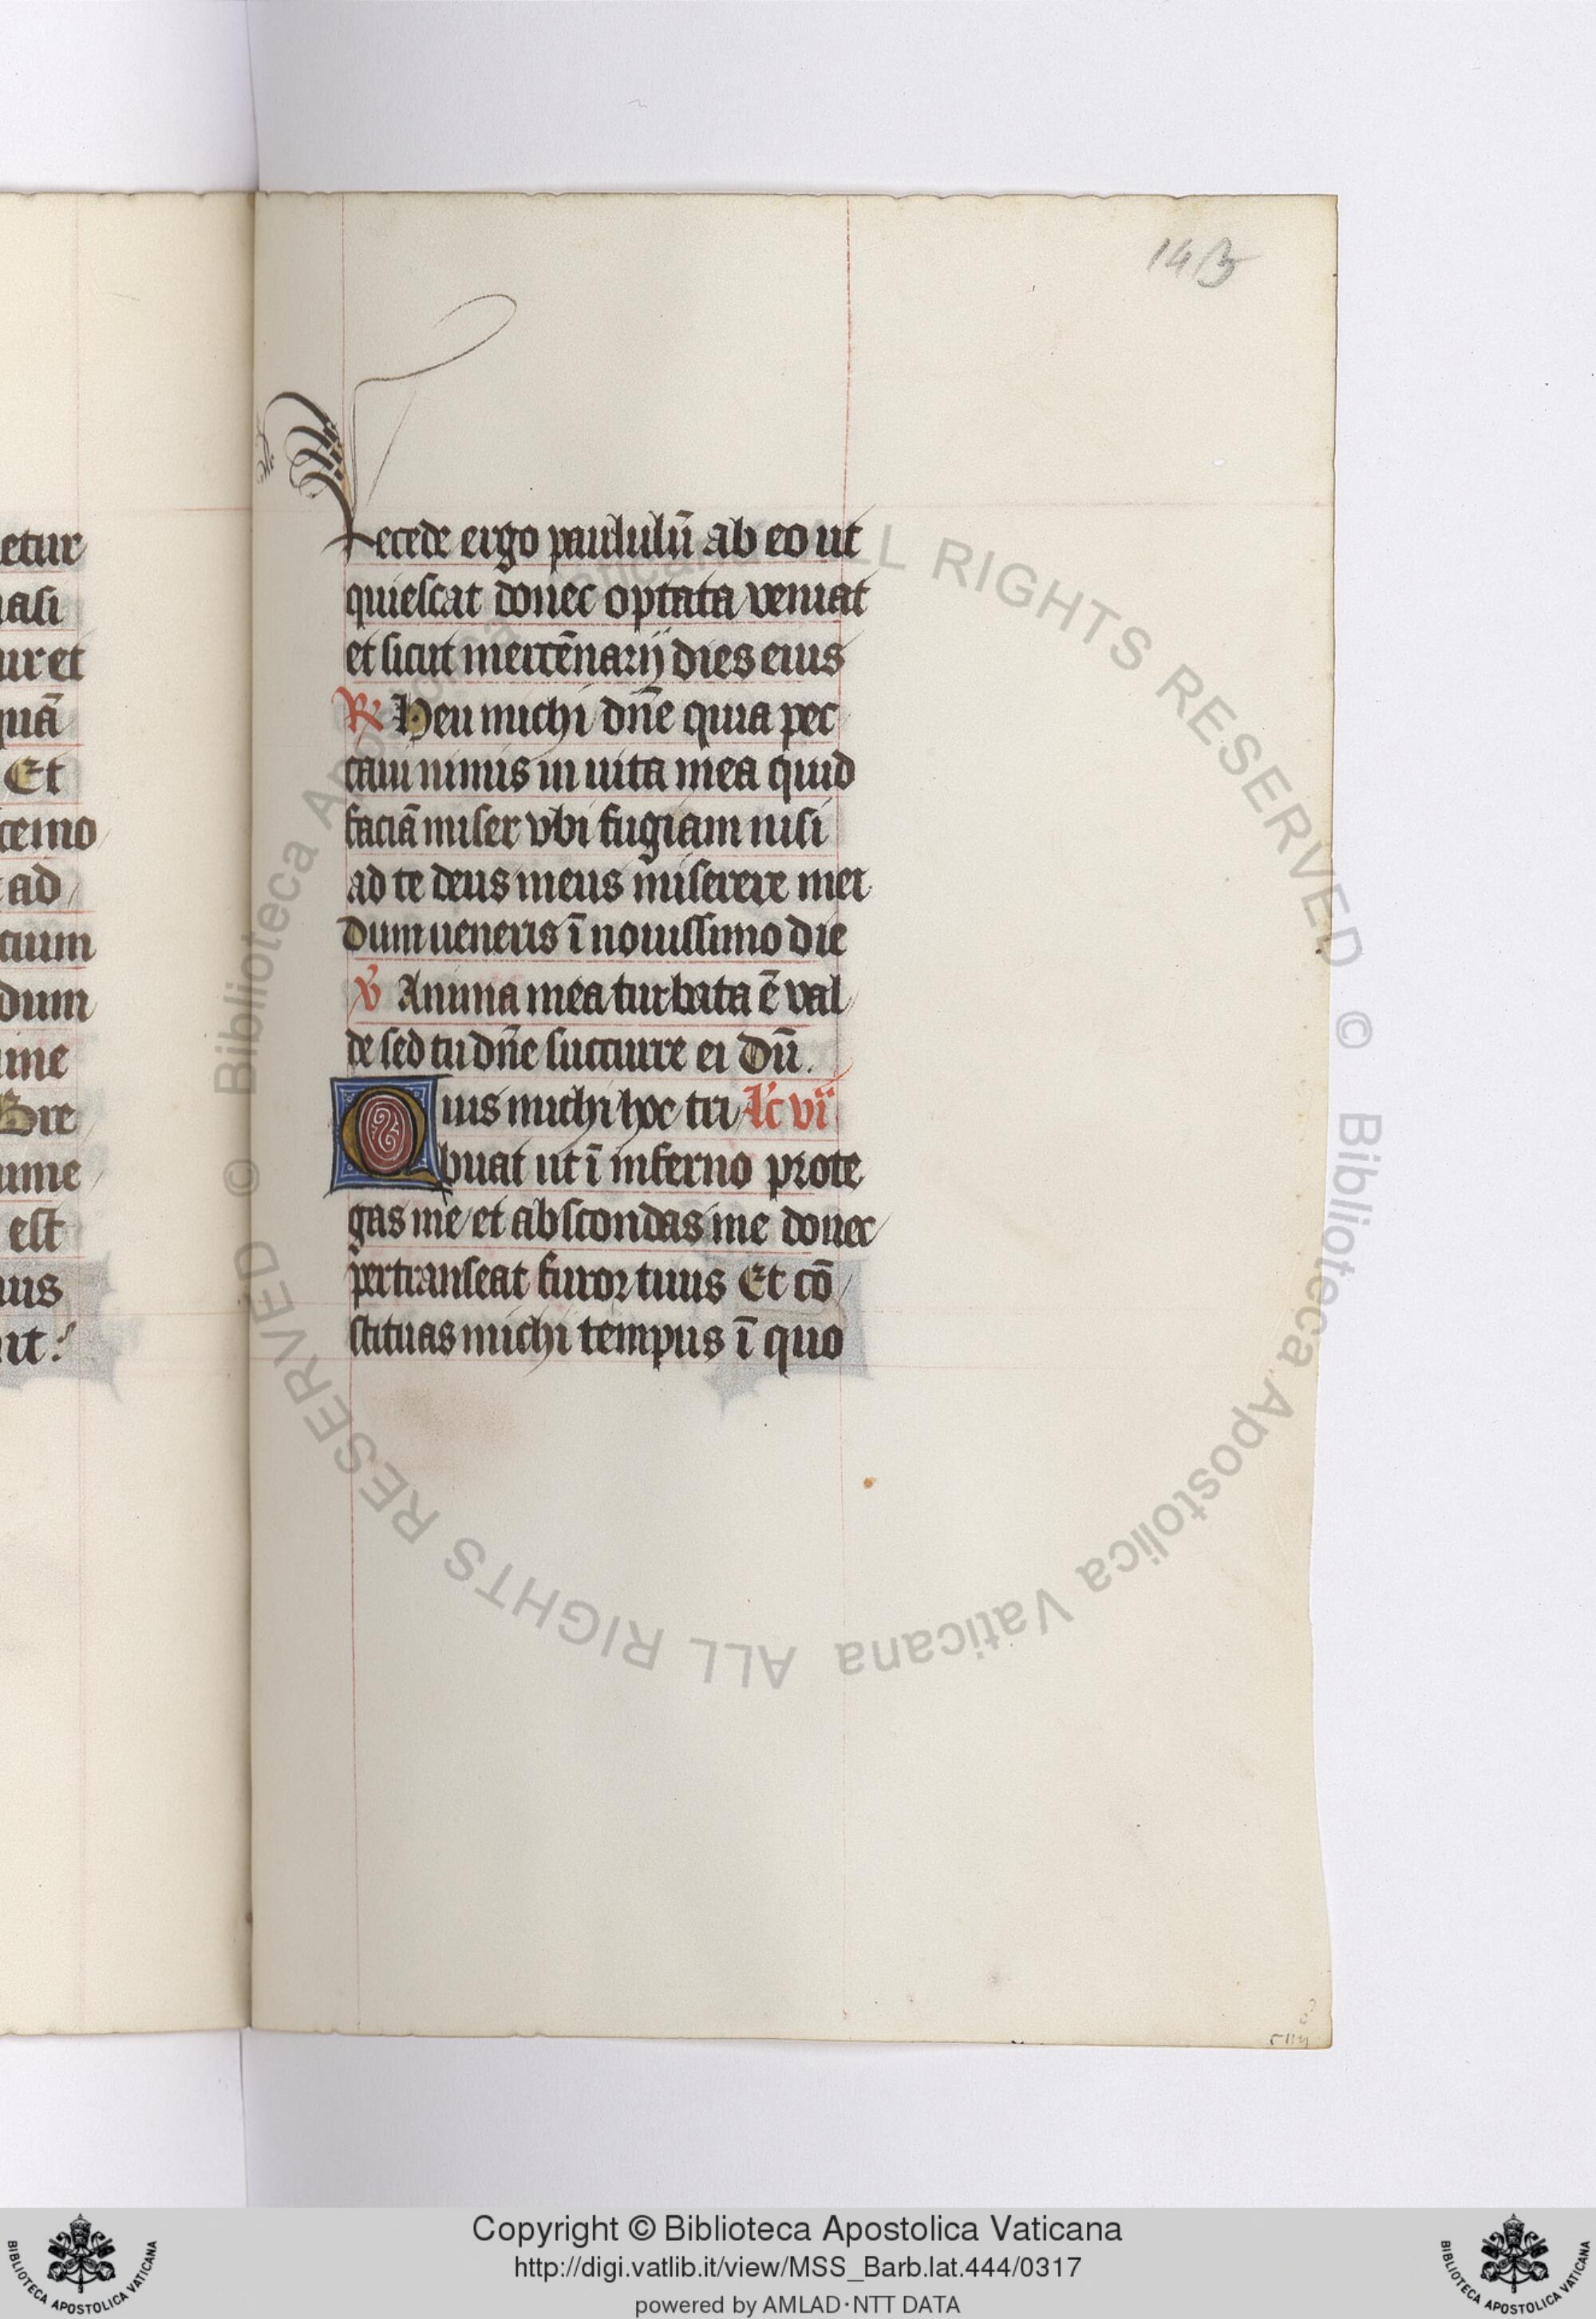 etur
asi
ur et
quā
Et
cerno
ad
cium
dum
ime
Bre
ume
est
uis
nt:
14B
Recede ergo paululū ab eo ut
quiescat donec optata veniat
et sicut mercēnarij dies eius
R Heu michi dn̄e quia pec
caui nimis in uita mea quid
faciā miser vbi fugiam nisi
ad te deus meus miserere mei
Dum ueneris ī nouissimo die
V Anima mea turbata ē val
de sed tu dn̄e succurre ei Dū.
Quis michi hoc tri lc vii
buat ut ī inferno prote
gas me et abscondas me donec
pertranseat furor tuus Et cō
stituas michi tempus ī quo
© Biblioteca Apostolica Vaticana ALL RIGHTS RESERVED © Biblioteca Apostolica Vaticana ALL RIGHTS RESERVED
Copyright © Biblioteca Apostolica Vaticana
http://digi.vatlib.it/view/MSS_Barb.lat.444/0317
powered by AMLAD·NTT DATA
BIBLIOTECA APOSTOLICA VATICANA
BIBLIOTECA APOSTOLICA VATICANA